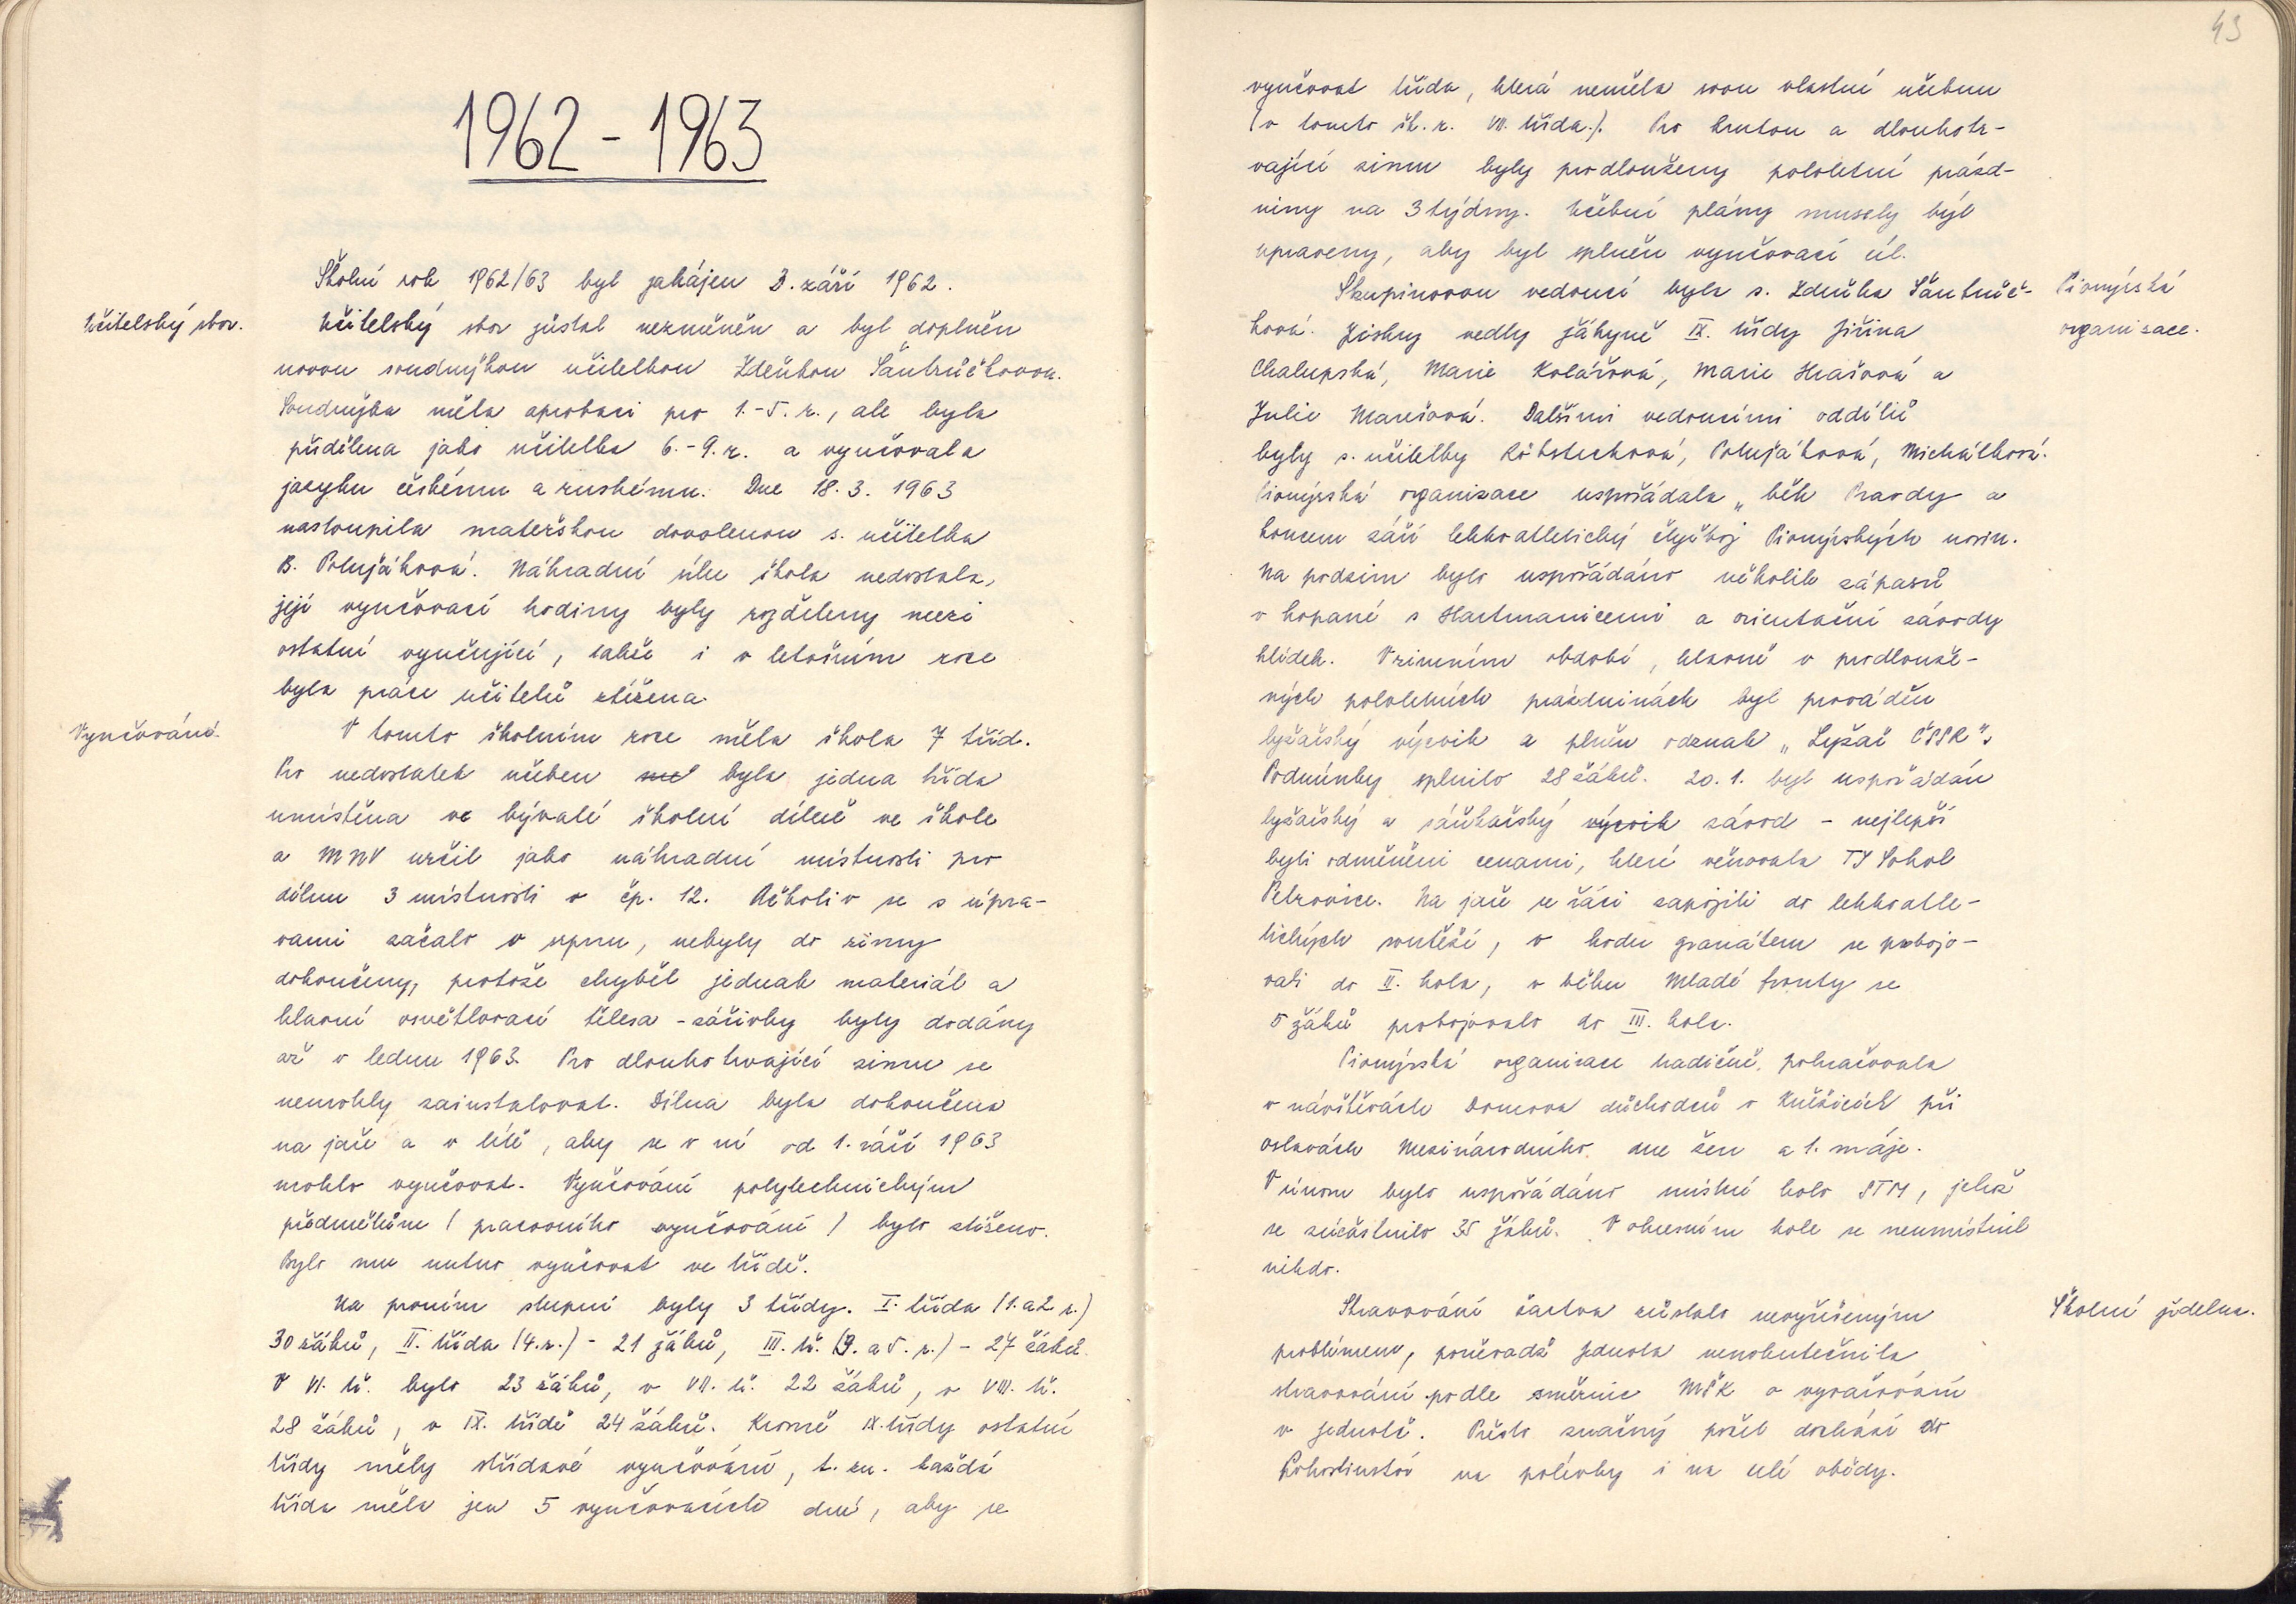 1962-1963
Školní rok 1962/63 byl zahájen 3. září 1962.
Učitelský sbor.
Učitelský sbor zůstal nezměněn a byl doplněn
novou soudružkou učitelkou Zdeňkou Šantrůčkovou.
Soudružka měla aprobaci pro 1.-5. r., ale byla
přidělena jako učitelka 6.-9. r. a vyučovala
jazyku českému a ruskému. Dne 18. 3. 1963
nastoupila mateřskou dovolenou s. učitelka
B. Polujáková. Náhradní sílu škola nedostala,
její vyučovací hodiny byly rozděleny mezi
ostatní vyučující, takže i v letošním roce
byla práce učitelů ztížena.
Vyučování.
V tomto školním roce měla škola 7 tříd.
Pro nedostatek učeben byla jedna třída
umístěna ve bývalé školní dílně ve škole
a MNV určil jako náhradní místnosti pro
dílnu 3 místnosti v čp. 12. Ačkoliv se s úpra-
vami začalo v srpnu, nebyly do zimy
dokončeny, protože chyběl jednak materiál a
hlavní osvětlovací tělesa - zářivky byly dodány
až v lednu 1963. Pro dlouhotrvající zimu se
nemohly zainstalovat. Dílna byla dokončena
na jaře a v létě, aby se v ní od 1. září 1963
mohlo vyučovat. Vyučování polytechnickým
předmětům (pracovního vyučování) bylo ztíženo.
Bylo mu nutno vyučovat ve třídě.
Na prvním stupni byly 3 třídy. I. třída (1. a 2. r.)
30 žáků, II. třída (4. r.) - 21 žáků, III. tř. (3. a 5. r.) - 27 žáků.
V VI. tř. bylo 23 žáků, v VII. tř. 22 žáků, v VIII. tř.
28 žáků, v IX. třídě 24 žáků. Kromě IX. třídy ostatní
třídy měly střídavé vyučování, t. zn. každá
třída měla jen 5 vyučovacích dní, aby se
43
vyučovat třída, která neměla svou vlastní učebnu
(v tomto šk. r. VII. třída.). Pro krutou a dlouhotr-
vající zimu byly prodlouženy pololetní prázd-
niny na 3 týdny. Učební plány musely být
upraveny, aby byl splněn vyučovací cíl.
Pionýrská
organizace.
Skupinovou vedoucí byla s. Zdeňka Šantrůč-
ková. Jiskry vedly žákyně IX. třídy Jiřina
Chalupská, Marie Kolářová, Marie Hrašová a
Julie Marešová. Dalšími vedoucími oddílů
byly s. učitelky Köbsteková, Polujáková, Michálková.
Pionýrská organizace uspořádala „běh Pravdy a
koncem září lehkoatletický čtyřboj Pionýrských novin.
Na podzim bylo uspořádáno několik zápasů
v kopané s Hartmanicemi a orientační závody
hlídek. V zimním období, hlavně v prodlouže-
ných pololetních prázdninách byl prováděn
lyžařský výcvik a plněn odznak „Lyžař ČSSR".
Podmínky splnilo 28 žáků. 20. 1. byl uspořádán
lyžařský a sáňkařský výcvik závod - nejlepší
byli odměněni cenami, které věnovala TJ Sokol
Petrovice. Na jaře se žáci zapojili do lehkoatle-
tických soutěží, v hodu granátem se probojo-
vali do II. kola, v běhu Mladé fronty se
5 žáků probojovalo do III. kola.
Pionýrská organizace tradičně pokračovala
v návštěvách Domova důchodců v Kněžicích při
oslavách Mezinárodního dne žen a 1. máje.
V únoru bylo uspořádáno místní kolo STM, jehož
se zúčastnilo 35 žáků. V okresním kole se neumístnil
nikdo.
Školní jídelna.
Stravování žactva zůstalo nevyřešeným
problémem, poněvadž Jednota neuskutečnila
stravování podle směrnic MŠK o vyvařování
v Jednotě. Přesto značný počet dochází do
Pohostinství na polévky i na celé obědy.